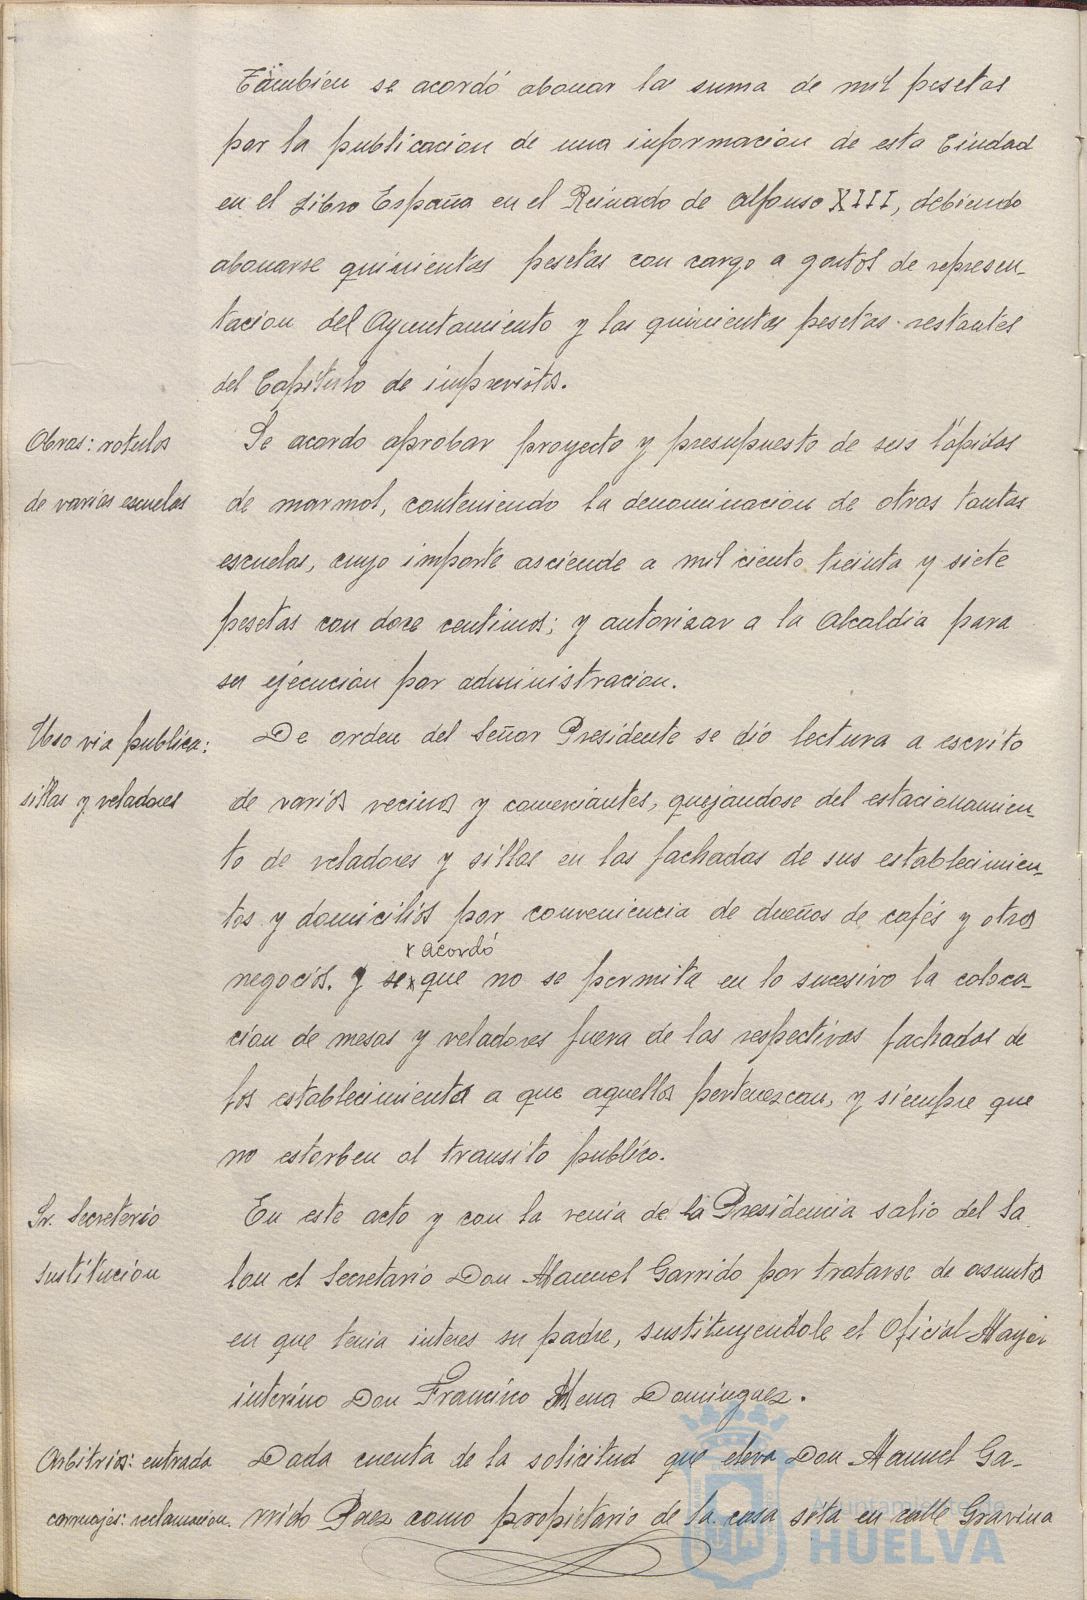 Tambien se acordó abonar la suma de mil pesetas
por la publicacion de una informacion de esta Ciudad
en el Libro España en el Reinado de Alfonso XIII, debiendo
abonarse quinientas pesetas con cargo a gastos de represen-
tacion del Ayuntamiento y las quinientas pesetas restantes
del Capítulo de imprevistos.
Obras: rotulos
de varias escuelas
Se acordo aprobar proyecto y presupuesto de seis lápidas
de marmol, conteniendo la denominacion de otras tantas
escuelas, cuyo importe asciende a mil ciento treinta y siete
pesetas con doce centimos; y autorizar a la Alcaldia para
su ejecucion por administracion.
Uso via publica:
sillas y veladores
De orden del Señor Presidente se dió lectura a escrito
de varios vecinos y comerciantes, quejandose del estacionamien-
to de veladores y sillas en las fachadas de sus establecimien-
tos y domicilios por conveniencia de dueños de cafés y otros
x acordó
negocios. y se x que no se permita en lo sucesivo la coloca-
cion de mesas y veladores fuera de las respectivas fachadas de
los establecimientos a que aquellos pertenezcan, y siempre que
no estorben al transito publico.
Sr. Secretario
sustitucion
En este acto y con la venia de la Presidencia salio del Sa
lon el Secretario Don Manuel Garrido por tratarse de asuntos
en que tenia interes su padre, sustituyendole el Oficial Mayor
interino Don Francisco Mena Dominguez.
Arbitrios: entrada
carruajes: reclamacion.
Dada cuenta de la solicitud que eleva Don Manuel Ga-
rrido Paez como propietario de la casa sita en calle Gravina
Ayuntamiento de
HUELVA